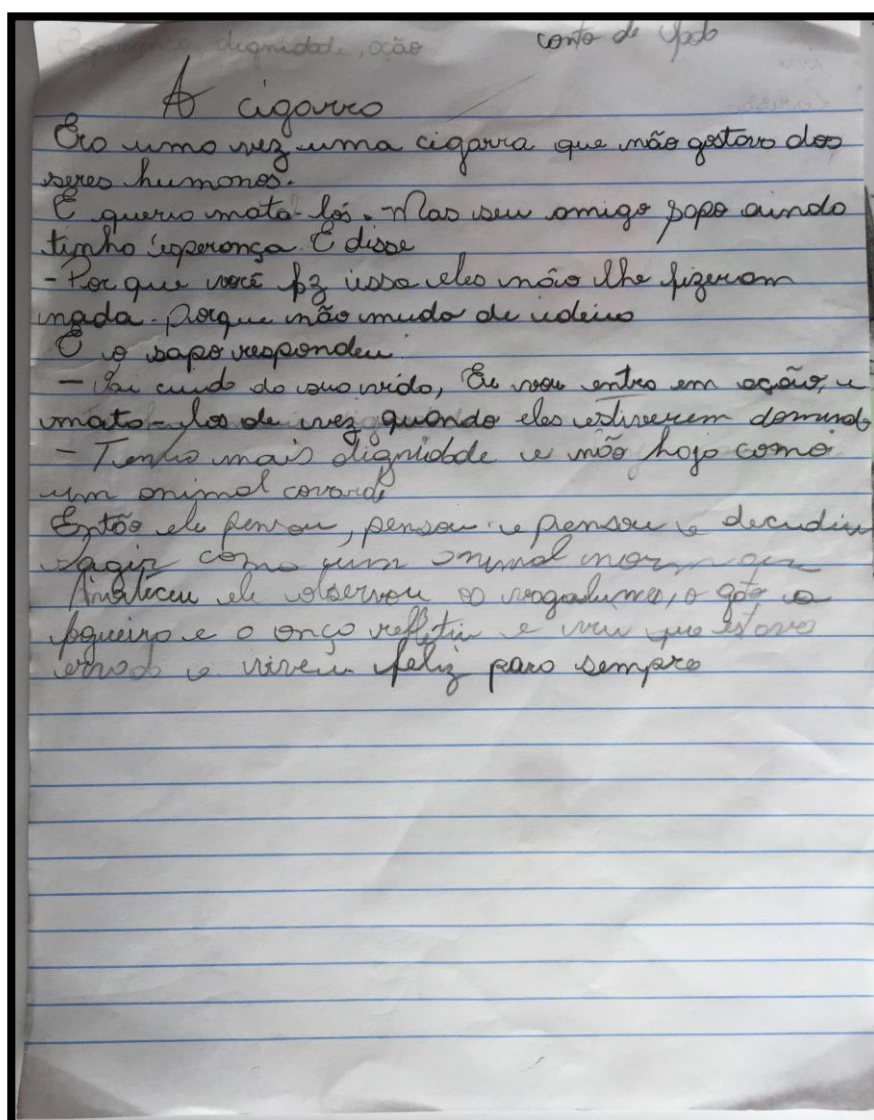 Esperança, dignidade, ação conto de fada
A cigarra
Era uma vez uma cigarra que não gostava dos
seres humanos.
E queria mata-lós. Mas seu amigo sapo ainda
tinha esperança. E disse
- Por que você fz issa eles não lhe fizeram
nada. porque não muda de ideia
E o sapo respondeu
- Vai cuida da sua vida, Eu vou entra em ação, e
mata-los de vez quando eles estiverem dormind
- Tenha mais dignidade e não haja como
um animal covarde
Então ele pensou, pensou e pensou e decidiu
agir como um animal
Anoiteceu ele observou os vagalumes, o gato a
fogueira e a onça refletiu e viu que estava
errado e viveu feliz para sempre